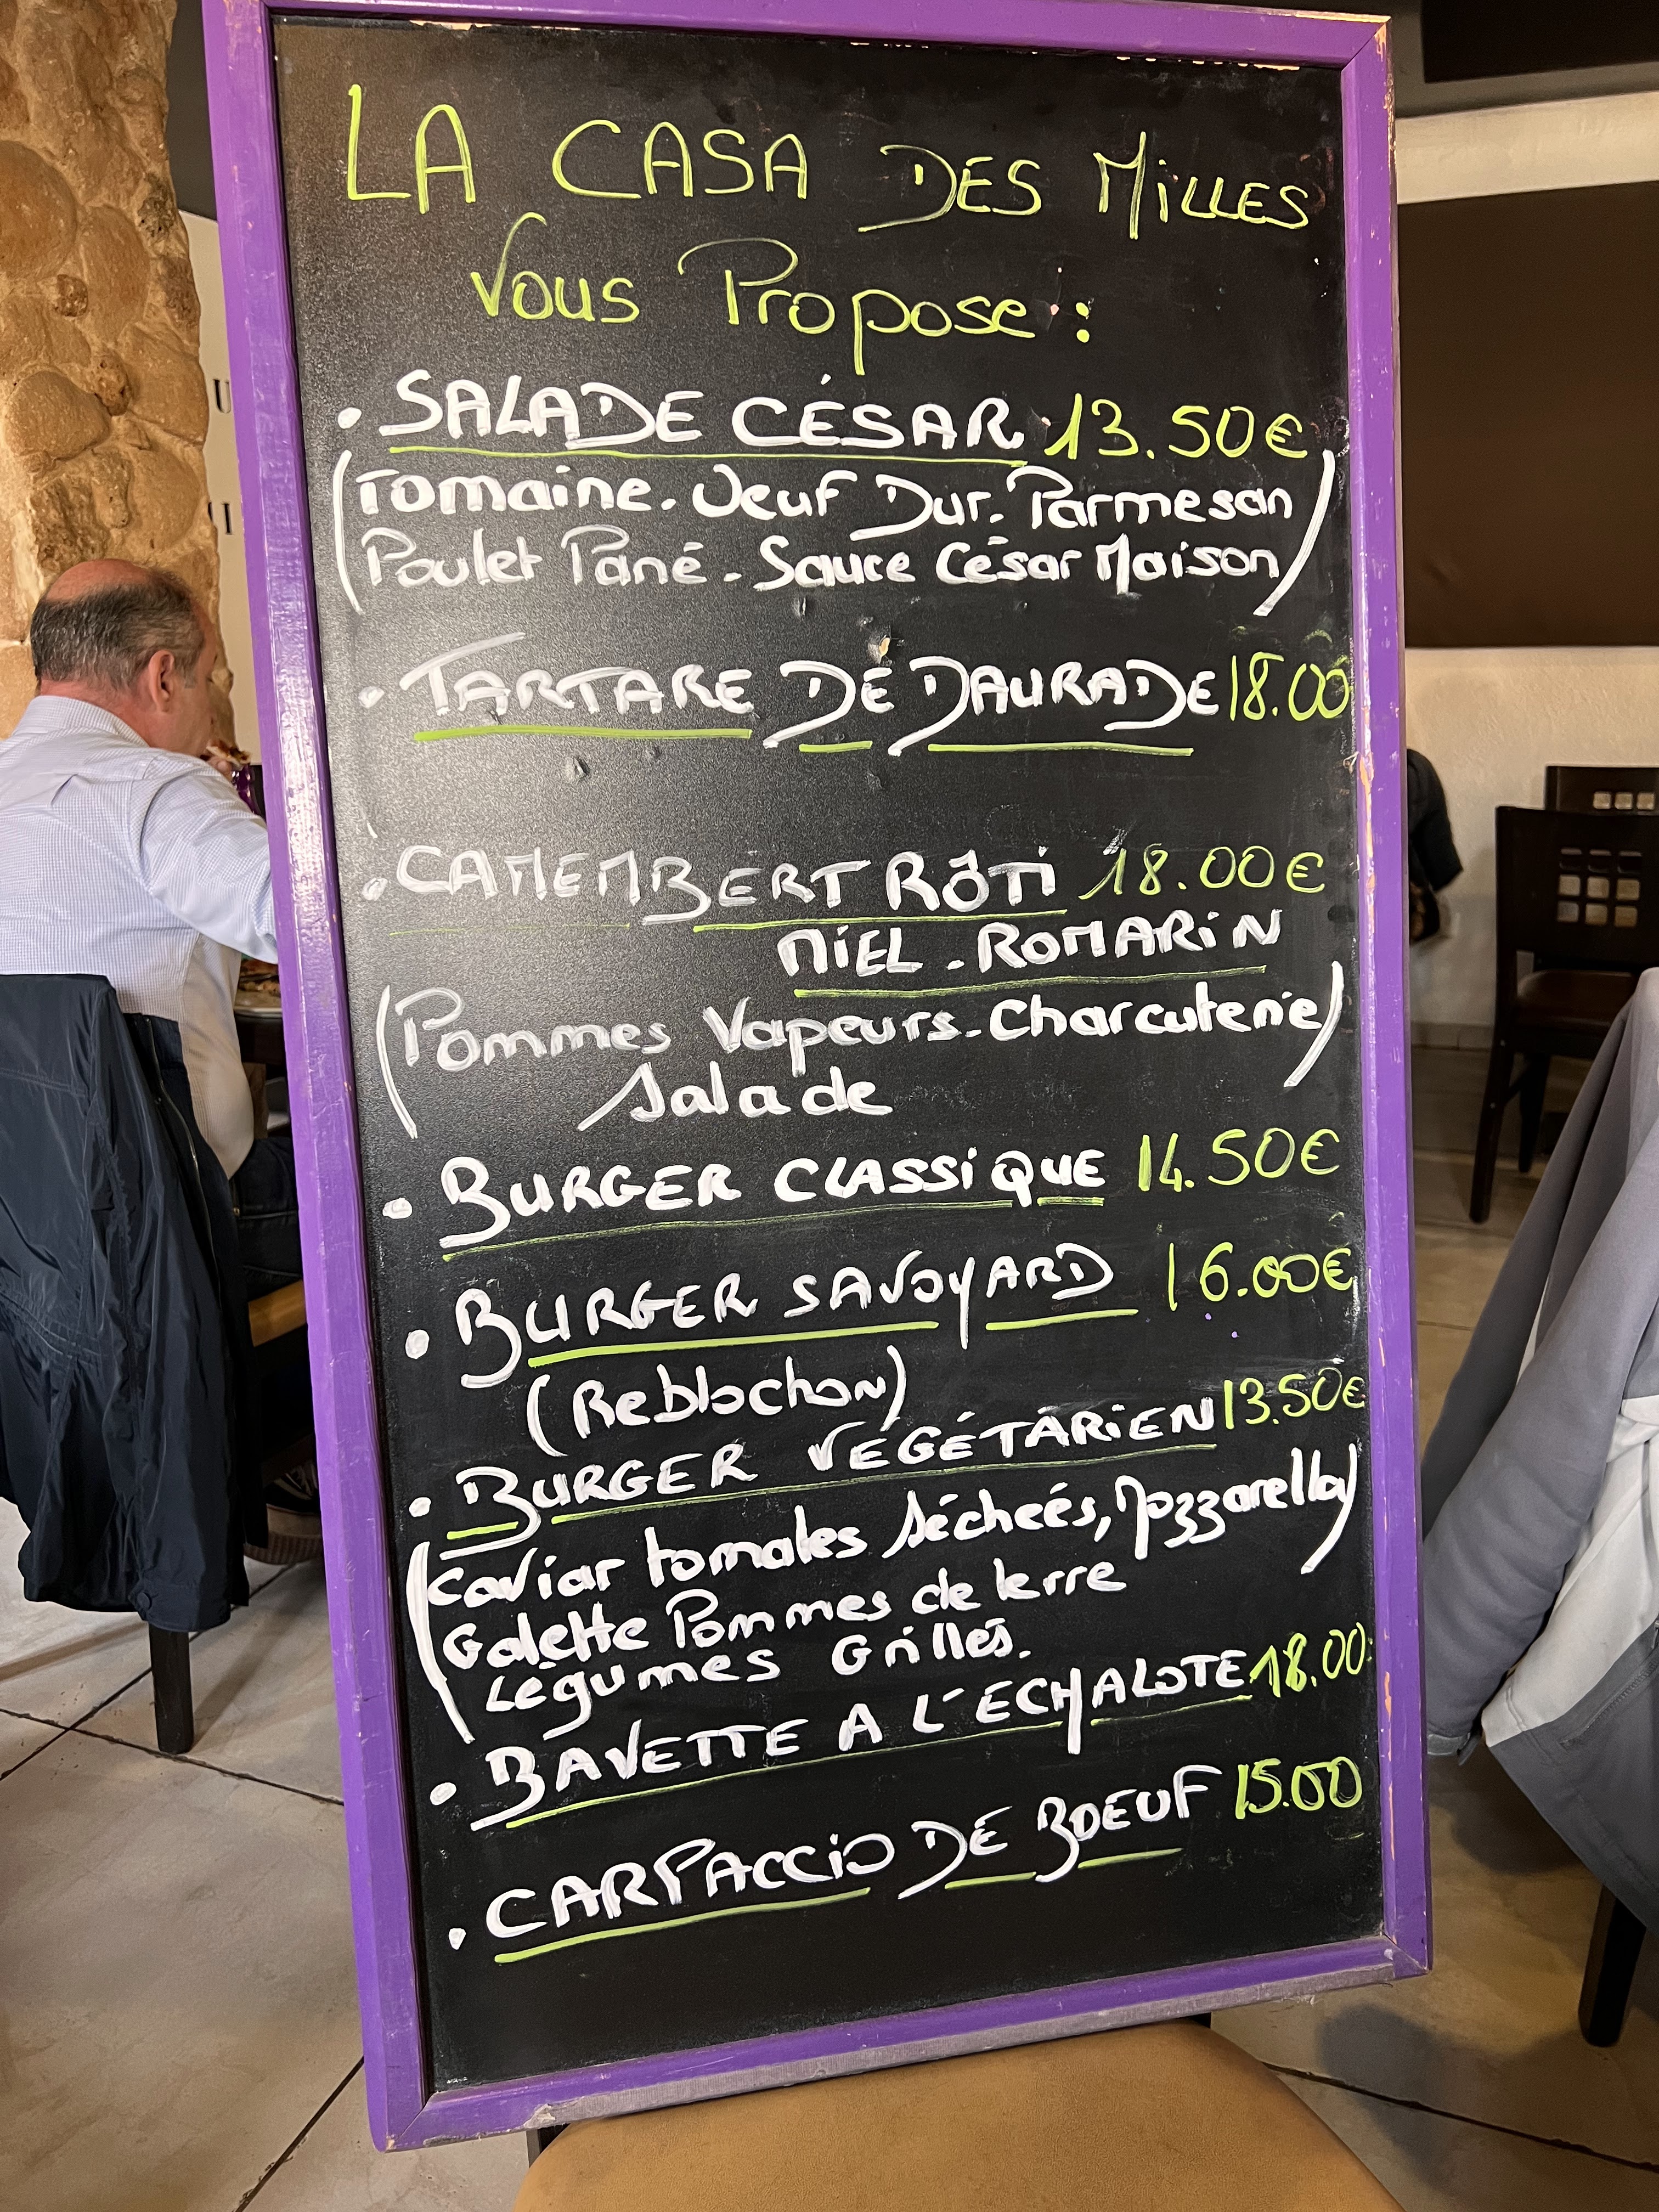 LA CASA DES MILLES
Vous Propose :
• SALADE CÉSAR 13.50€
(Romaine. Oeuf Dur. Parmesan
Poulet Pané - Sauce César Maison)
• TARTARE DE DAURADE 18.00
• CAMEMBERT RÔTI 18.00€
MIEL - ROMARIN
(Pommes Vapeurs - Charcuterie)
Salade
• BURGER CLASSIQUE 14.50€
• BURGER SAVOYARD 16.00€
(Reblochon)
• BURGER VÉGÉTARIEN 13.50€
(Caviar tomates Séchées, Mozzarella)
Galette Pommes de terre
Légumes Grillés.
• BAVETTE A L'ECHALOTE 18.00
• CARPACCIO DE BOEUF 15.00